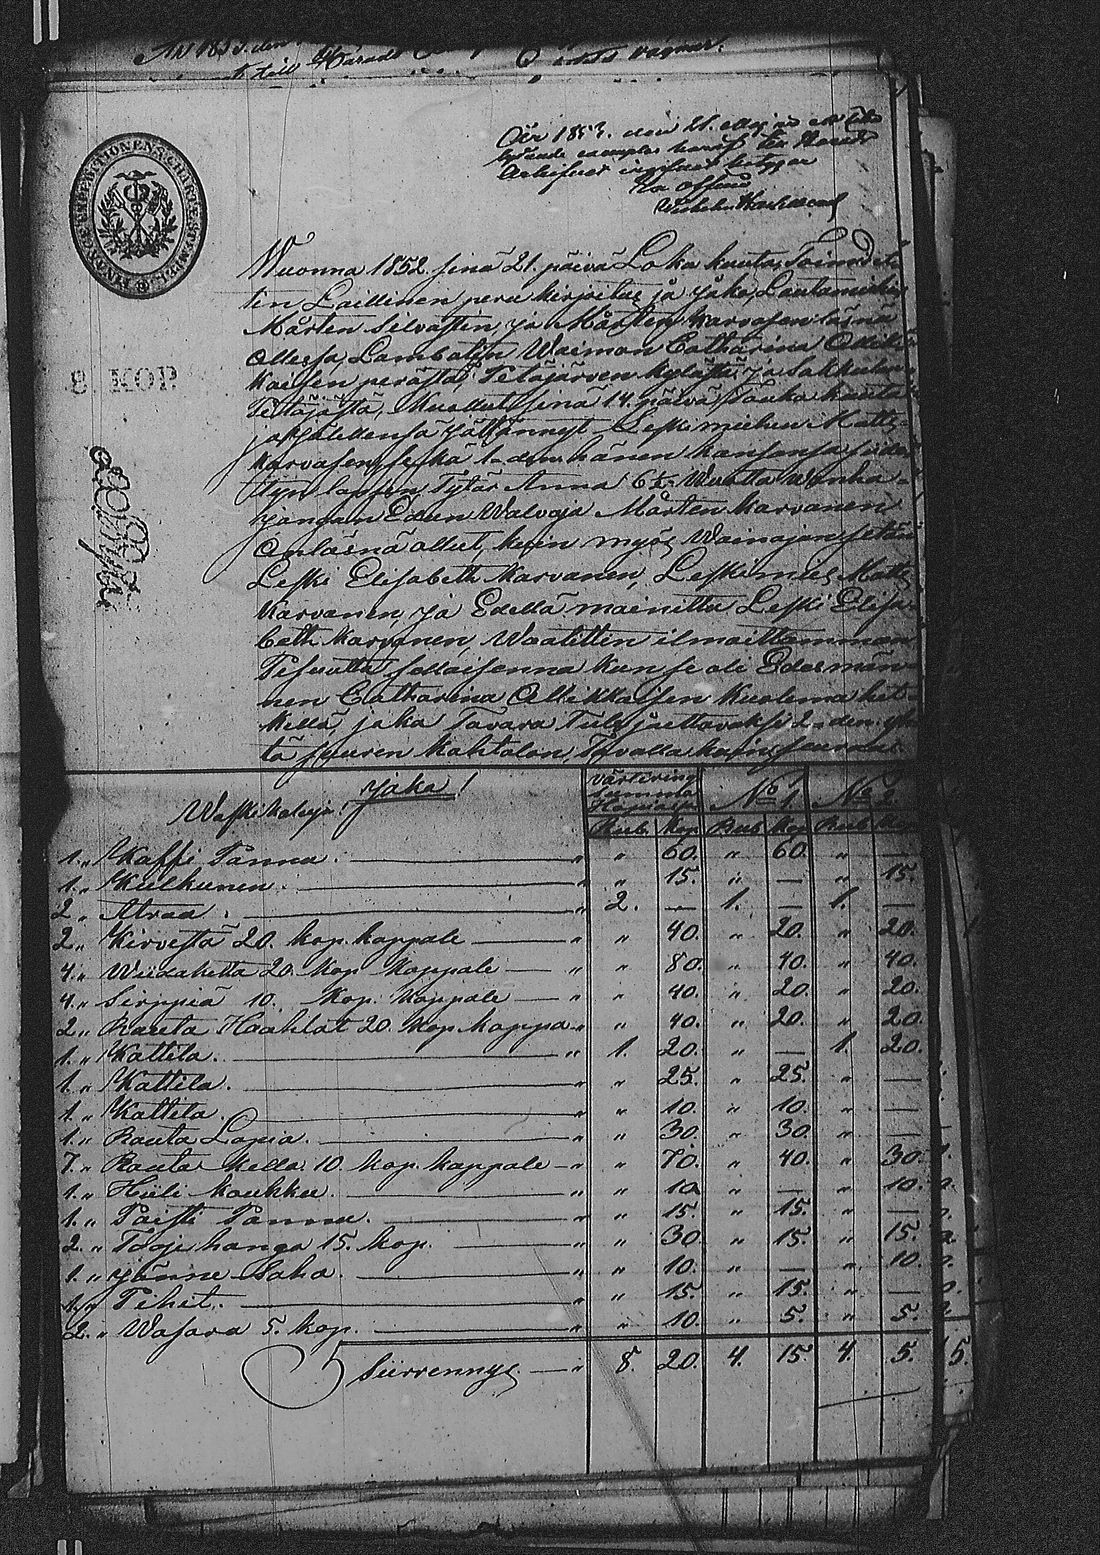 År 1853. den
till Härads
År 1853. den 21. Maj
Wuonna 1852 sinä 21. päivä Loka kuuta, Toimite
tin Laillinen peru kirjoitus ja Jako, Lautamiehen
Mårten Silvastin, ja Mårten Karvasen läsnä
Ollessa, Lambotin Waimon Catharina Ollik
kaisen perästä, Petäjärven kylästä, ja Sakkulan
Pitäjästä, Kuollut sinä 14. päivä, Touko kuuta
ja jälkeensä jättännyt Leski miehen Matts
Karvasen, sekä 1-den hänen kansansa siite
tyn lapsen Tytär Anna 6½ Wuotta Wanha
jongan Edun Walvoja Mårten Karvanen
On läsnä ollut, kuin myös Wainajan
Leski Elisabeth Karvanen, Leskimies Matts
Karvanen, ja Edellä mainittu Leski Elisa
beth Karvanen, Waadittin ilmoittamman
Pesuutta sellaisenna kun se oli Edes män
nen Catharina Ollikkaisen Kuolema het
kellä, joka Tavara Tule jaettavaksi 2-den yh
tä suuren Kohtalon, Tavalla kuin seuraa
Jako!
Waski kaluja
värtering summa Hopiassa No 1. No 2.
Rub. Kop. Rub. Kop. Rub. Kop.
1. " Kaffi Pannu. " " 60. " 60. " —
1. " Kulkunen. " " 15. " — " 15.
2. " Atraa. " 2. — 1. — 1. —
2. " Kirvestä 20. kop. kappale — " " 40. " 20. " 20.
4. " Wiidaketta 20. kop. kappale — " " 80. " 40. " 40.
4. " Sirppiä 10. kop. kappale — " " 40. " 20. " 20.
2. " Rauta Haahlat 20. kop. kappa " " 40. " 20. " 20.
1. " Kattila. " 1. 20. " — 1. 20.
1. " Kattila. " " 25. " 25. " —
1. " Kattila. " " 10. " 10. " —
1. " Rauta Lapia. " " 30. " 30. " —
7. " Rauta kella 10. kop. kappale — " " 70. " 40. " 30.
1. " Hiili Koukku. " " 10. " — " 10.
1. " Paisti Pannu. " " 15. " 15. " —
2. " Tooji hanga 15. kop. " " 30. " 15. " 15.
1. " Jänne Saha. " " 10. " — " 10.
1. " Pihit. " " 15. " 15. " —
2. " Wasara 5. kop. " " 10. " 5. " 5.
Siirrennys — " 8. 20. 4. 15. 4. 5.
8. KOP